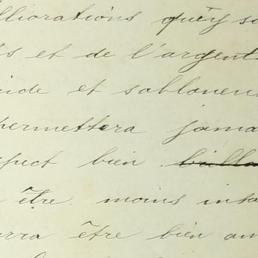 lliorations qu'y so
s et de l'argent
ide et sabloneu
permettra jama
spect bien
être moins inta
rra être bien am